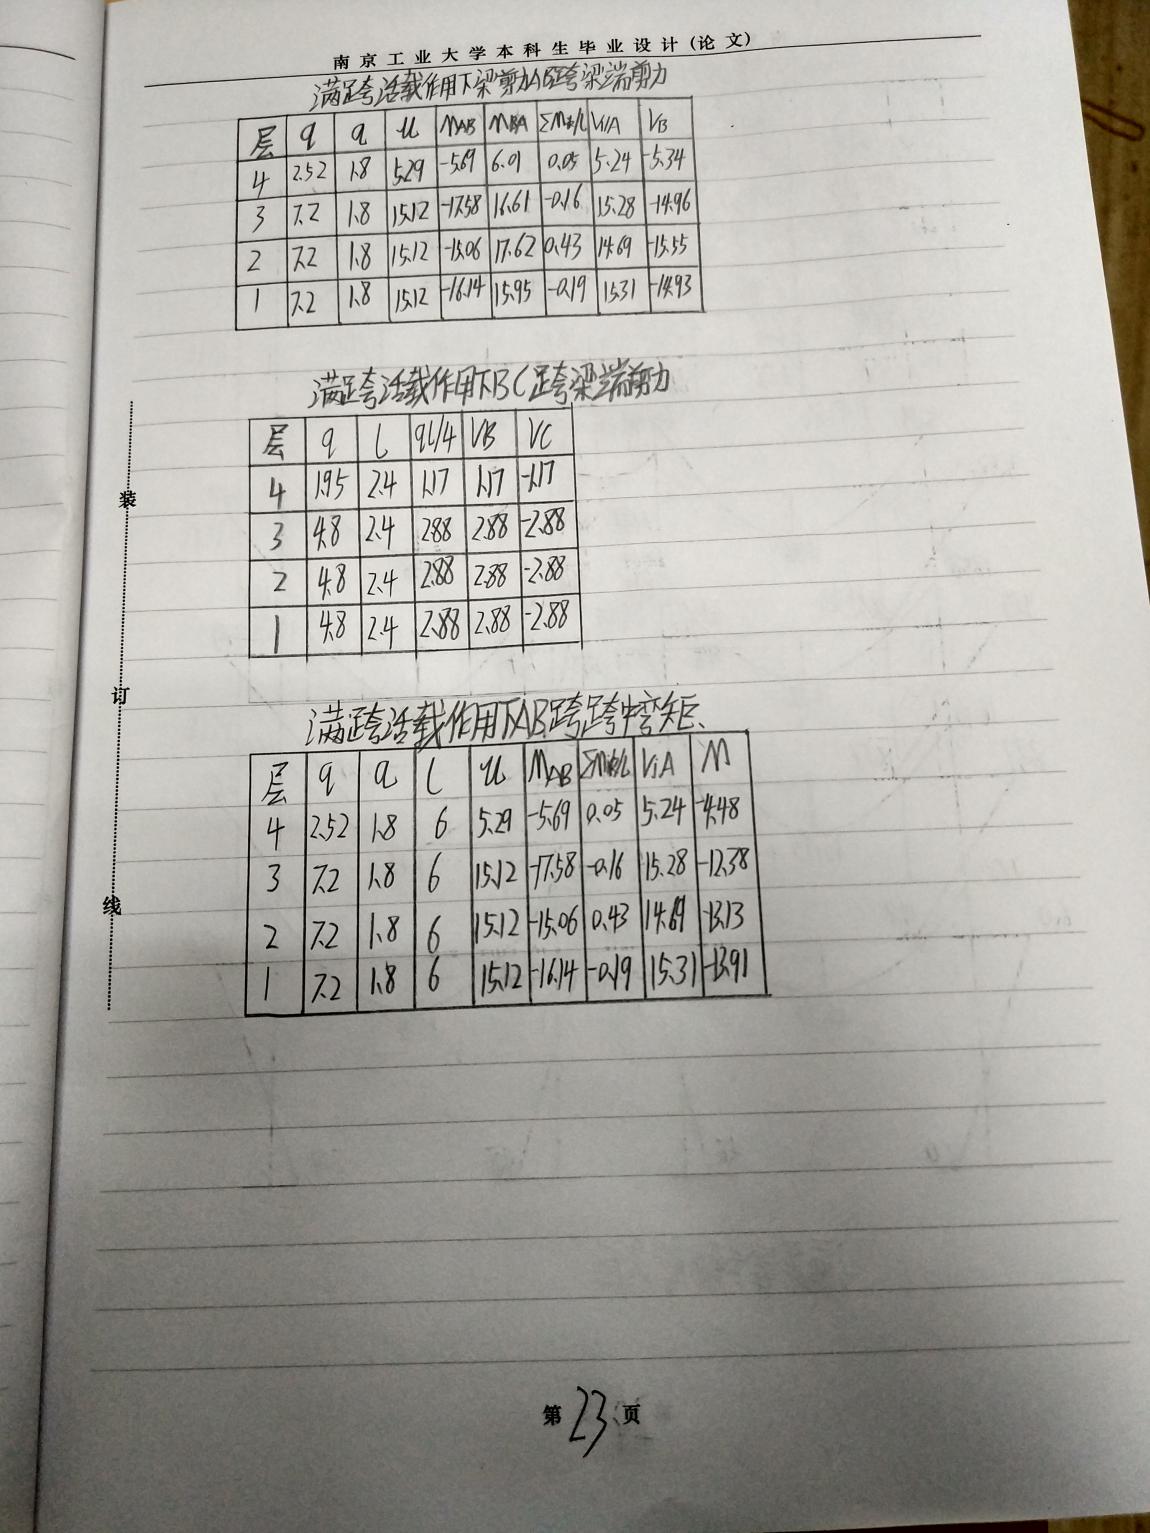 南京工业大学本科生毕业设计(论文)
满跨活载作用下梁剪力AB跨梁端剪力
层 q a u MAB MBA ΣMik/L V1/A VB
4 2.52 1.8 5.29 -5.69 6.01 0.05 5.24 -5.34
3 7.2 1.8 15.12 -17.58 16.61 -0.16 15.28 -14.96
2 7.2 1.8 15.12 -15.06 17.62 0.43 14.69 -15.55
1 7.2 1.8 15.12 -16.14 15.95 -0.19 15.31 -14.93
满跨活载作用下BC跨梁端剪力
层 q L qL/4 VB VC
4 1.95 2.4 1.17 1.17 -1.17
3 4.8 2.4 2.88 2.88 -2.88
2 4.8 2.4 2.88 2.88 -2.88
1 4.8 2.4 2.88 2.88 -2.88
满跨活载作用下AB跨跨中弯矩
层 q a L u MAB ΣMik/L V1A M
4 2.52 1.8 6 5.29 -5.69 0.05 5.24 -4.48
3 7.2 1.8 6 15.12 -17.58 -0.16 15.28 -12.38
2 7.2 1.8 6 15.12 -15.06 0.43 14.69 -13.13
1 7.2 1.8 6 15.12 -16.14 -0.19 15.31 -13.91
装
订
线
第23页